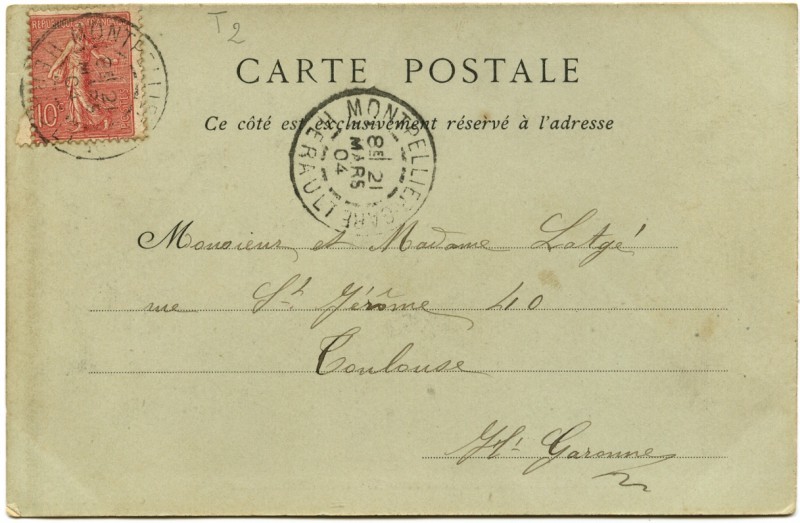 T2
10
CARTE POSTALE
Ce côté est exclusivement réservé à l'adresse
MONTPELLIER GARE
8E 21
MARS
04
HERAULT
Monsieur et Madame Latgé
rue St Jérôme 40
Toulouse
Hte Garonne